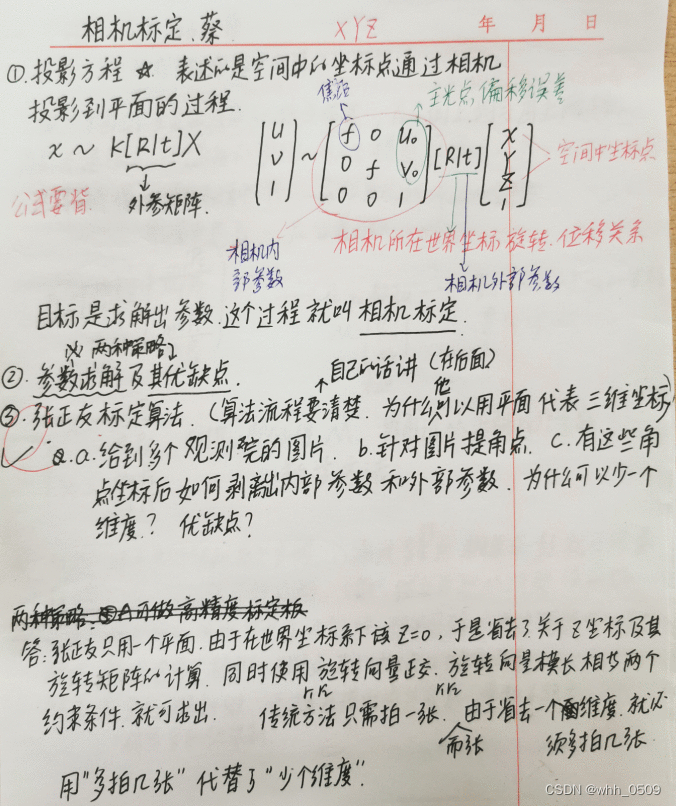 相机标定.蔡
XYZ
年 月 日
①.投影方程 ☆. 表述的是空间中的坐标点通过相机
投影到平面的过程.
焦距
主光点,偏移误差
x ~ K[R|t]X
[u v 1] ~ [f 0 u₀ 0 f v₀ 0 0 1] [R|t] [X Y Z 1]
空间中坐标点
公式要背.
外参矩阵.
相机所在世界坐标旋转.位移关系
相机内
部参数
相机外部参数
目标是求解出参数.这个过程就叫相机标定.
两种策略
②.参数求解及其优缺点.
自己的话讲(在后面)
③.张正友标定算法.(算法流程要清楚.为什么他可以用平面代表三维坐标)
✓ a.给到多个观测的图片. b.针对图片提角点. c.有这些角
点坐标后如何剥离出内部参数和外部参数.为什么可以少一个
维度? 优缺点?
两种策略:①A可做高精度标定板
答:张正友只用一个平面.由于在世界坐标系下该Z=0,于是省去了关于Z坐标及其
旋转矩阵的计算.同时使用旋转向量正交.旋转向量模长相等两个
r₁r₂ r₁r₂
约束条件.就可求出. 传统方法只需拍一张.由于省去一个维度.就必
而张 须多拍几张.
用"多拍几张"代替了"少个维度".
CSDN @whh_0509